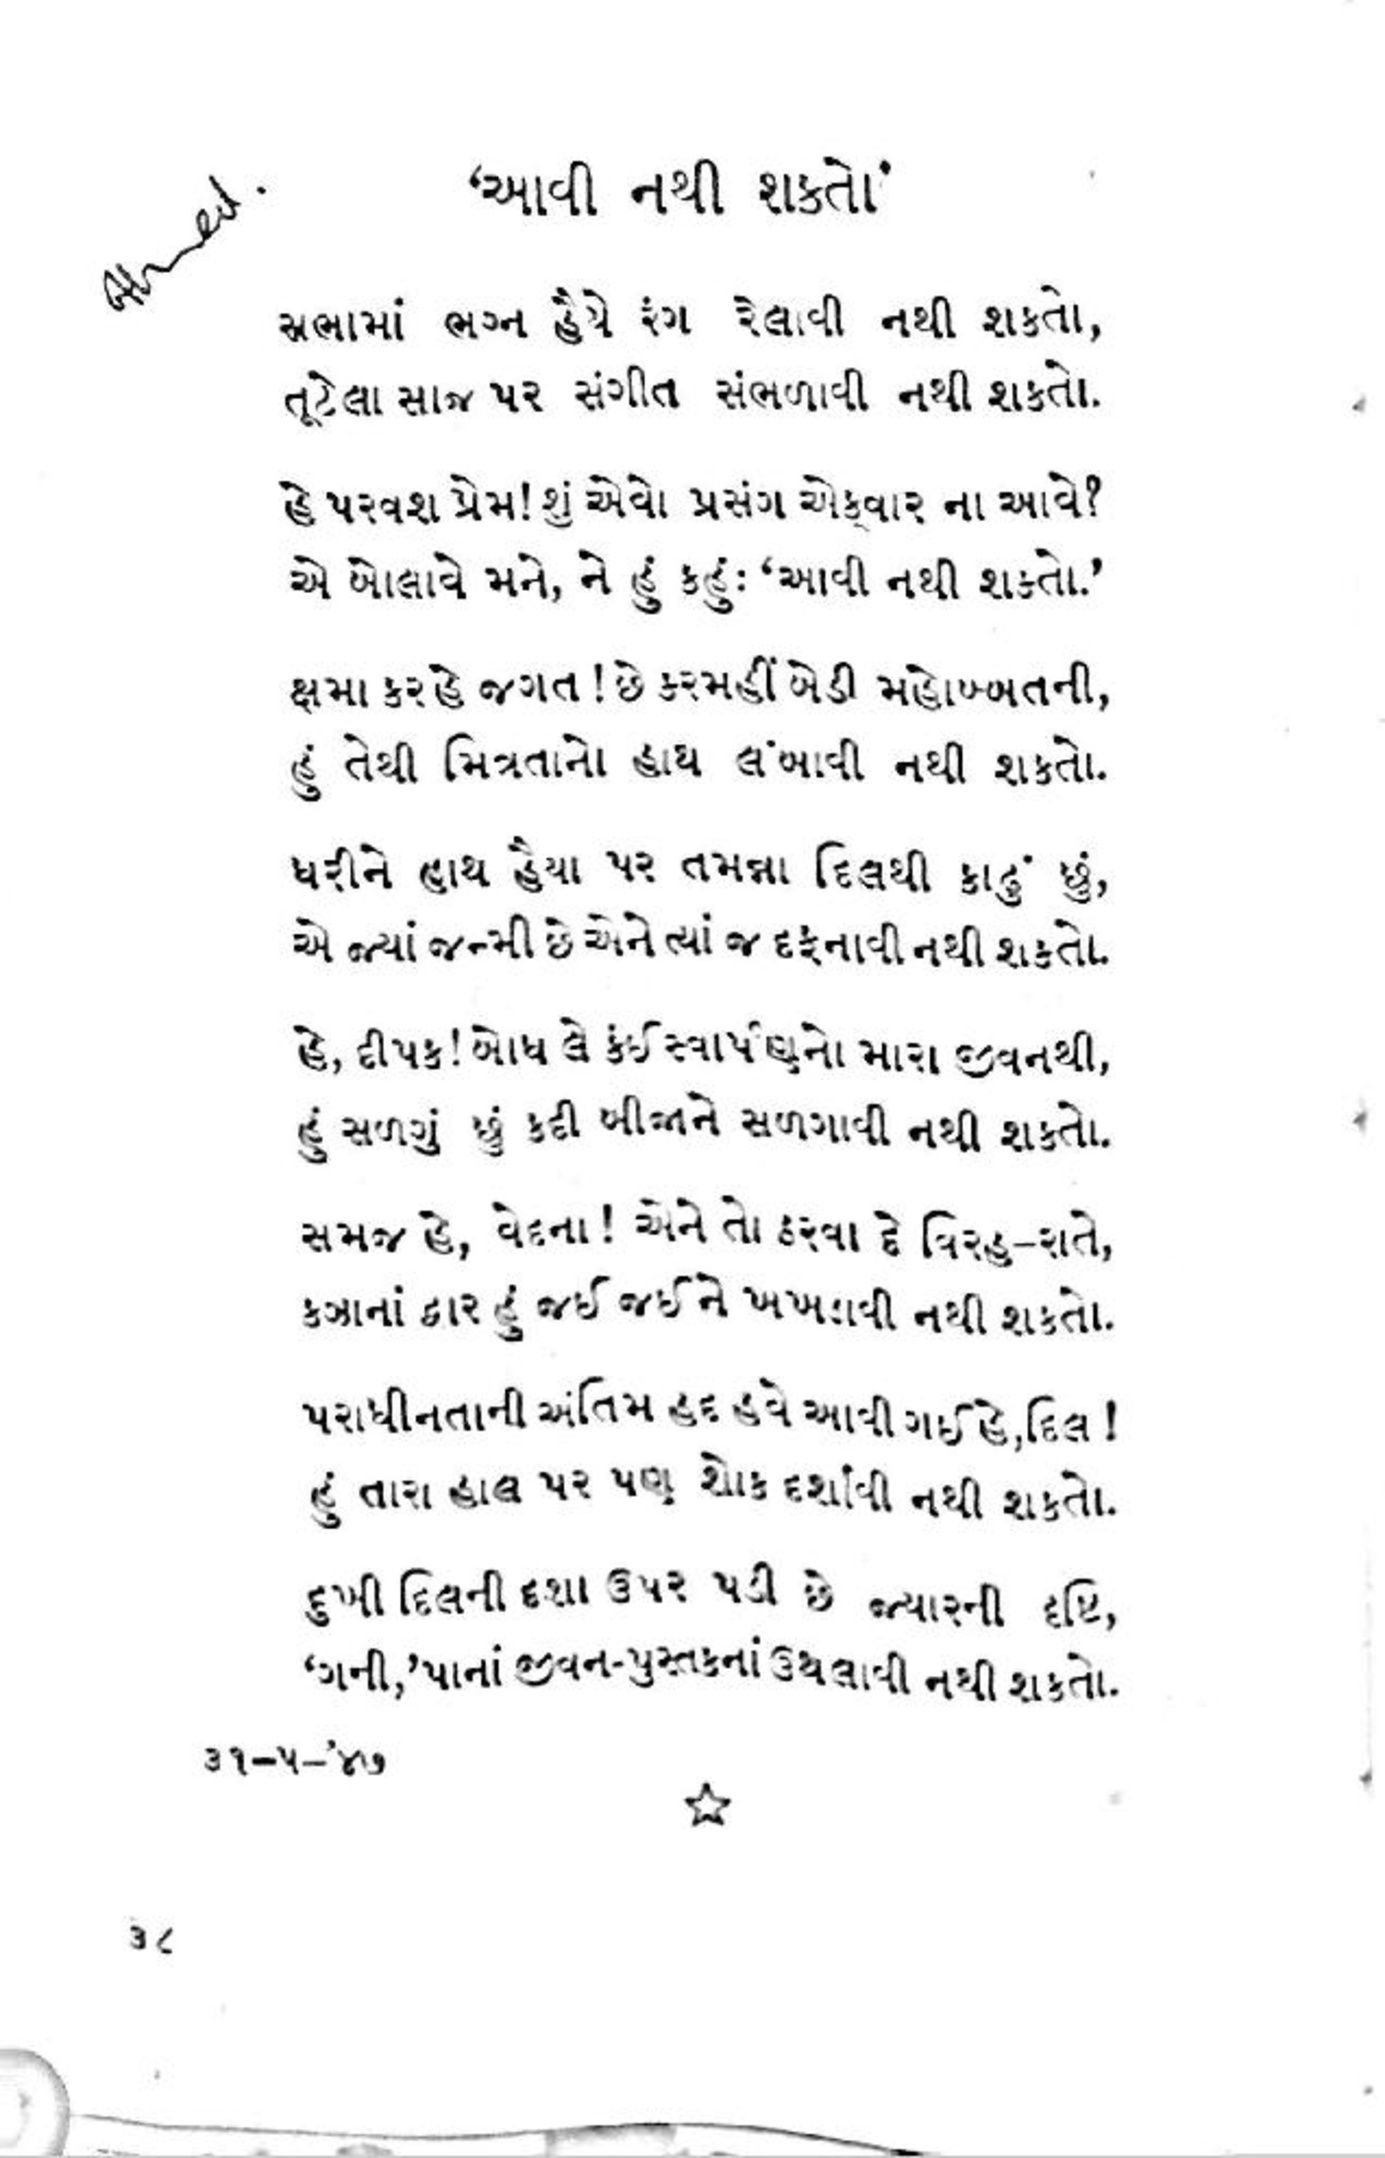 ‘આવી નથી શકતો’
Ahmed.
સભામાં ભગ્ન હૈયે રંગ રેલાવી નથી શકતો,
તૂટેલા સાજ પર સંગીત સંભળાવી નથી શકતો.
હે પરવશ પ્રેમ! શું એવો પ્રસંગ એક્વાર ના આવે?
એ બોલાવે મને, ને હું કહું: ‘આવી નથી શકતો.’
ક્ષમા કર હે જગત! છે કરમહીં બેડી મહોબ્બતની,
હું તેથી મિત્રતાનો હાથ લંબાવી નથી શકતો.
ધરીને હાથ હૈયા પર તમન્ના દિલથી કાઢું છું,
એ જ્યાં જન્મી છે એને ત્યાં જ દફનાવી નથી શકતો.
હે, દીપક! બોધ લે કંઈ સ્વાર્પણનો મારા જીવનથી,
હું સળગું છું કદી બીજાને સળગાવી નથી શકતો.
સમજ હે, વેદના! એને તો ઠરવા દે વિરહ-રાતે,
કઝાનાં દ્વાર હું જઈ જઈને ખખડાવી નથી શકતો.
પરાધીનતાની અંતિમ હદ હવે આવી ગઈ હે, દિલ!
હું તારા હાલ પર પણ શોક દર્શાવી નથી શકતો.
દુખી દિલની દશા ઉપર પડી છે જ્યારની દૃષ્ટિ,
‘ગની,’ પાનાં જીવન-પુસ્તકનાં ઉથલાવી નથી શકતો.
૩૧-૫-’૪૭
૩૮